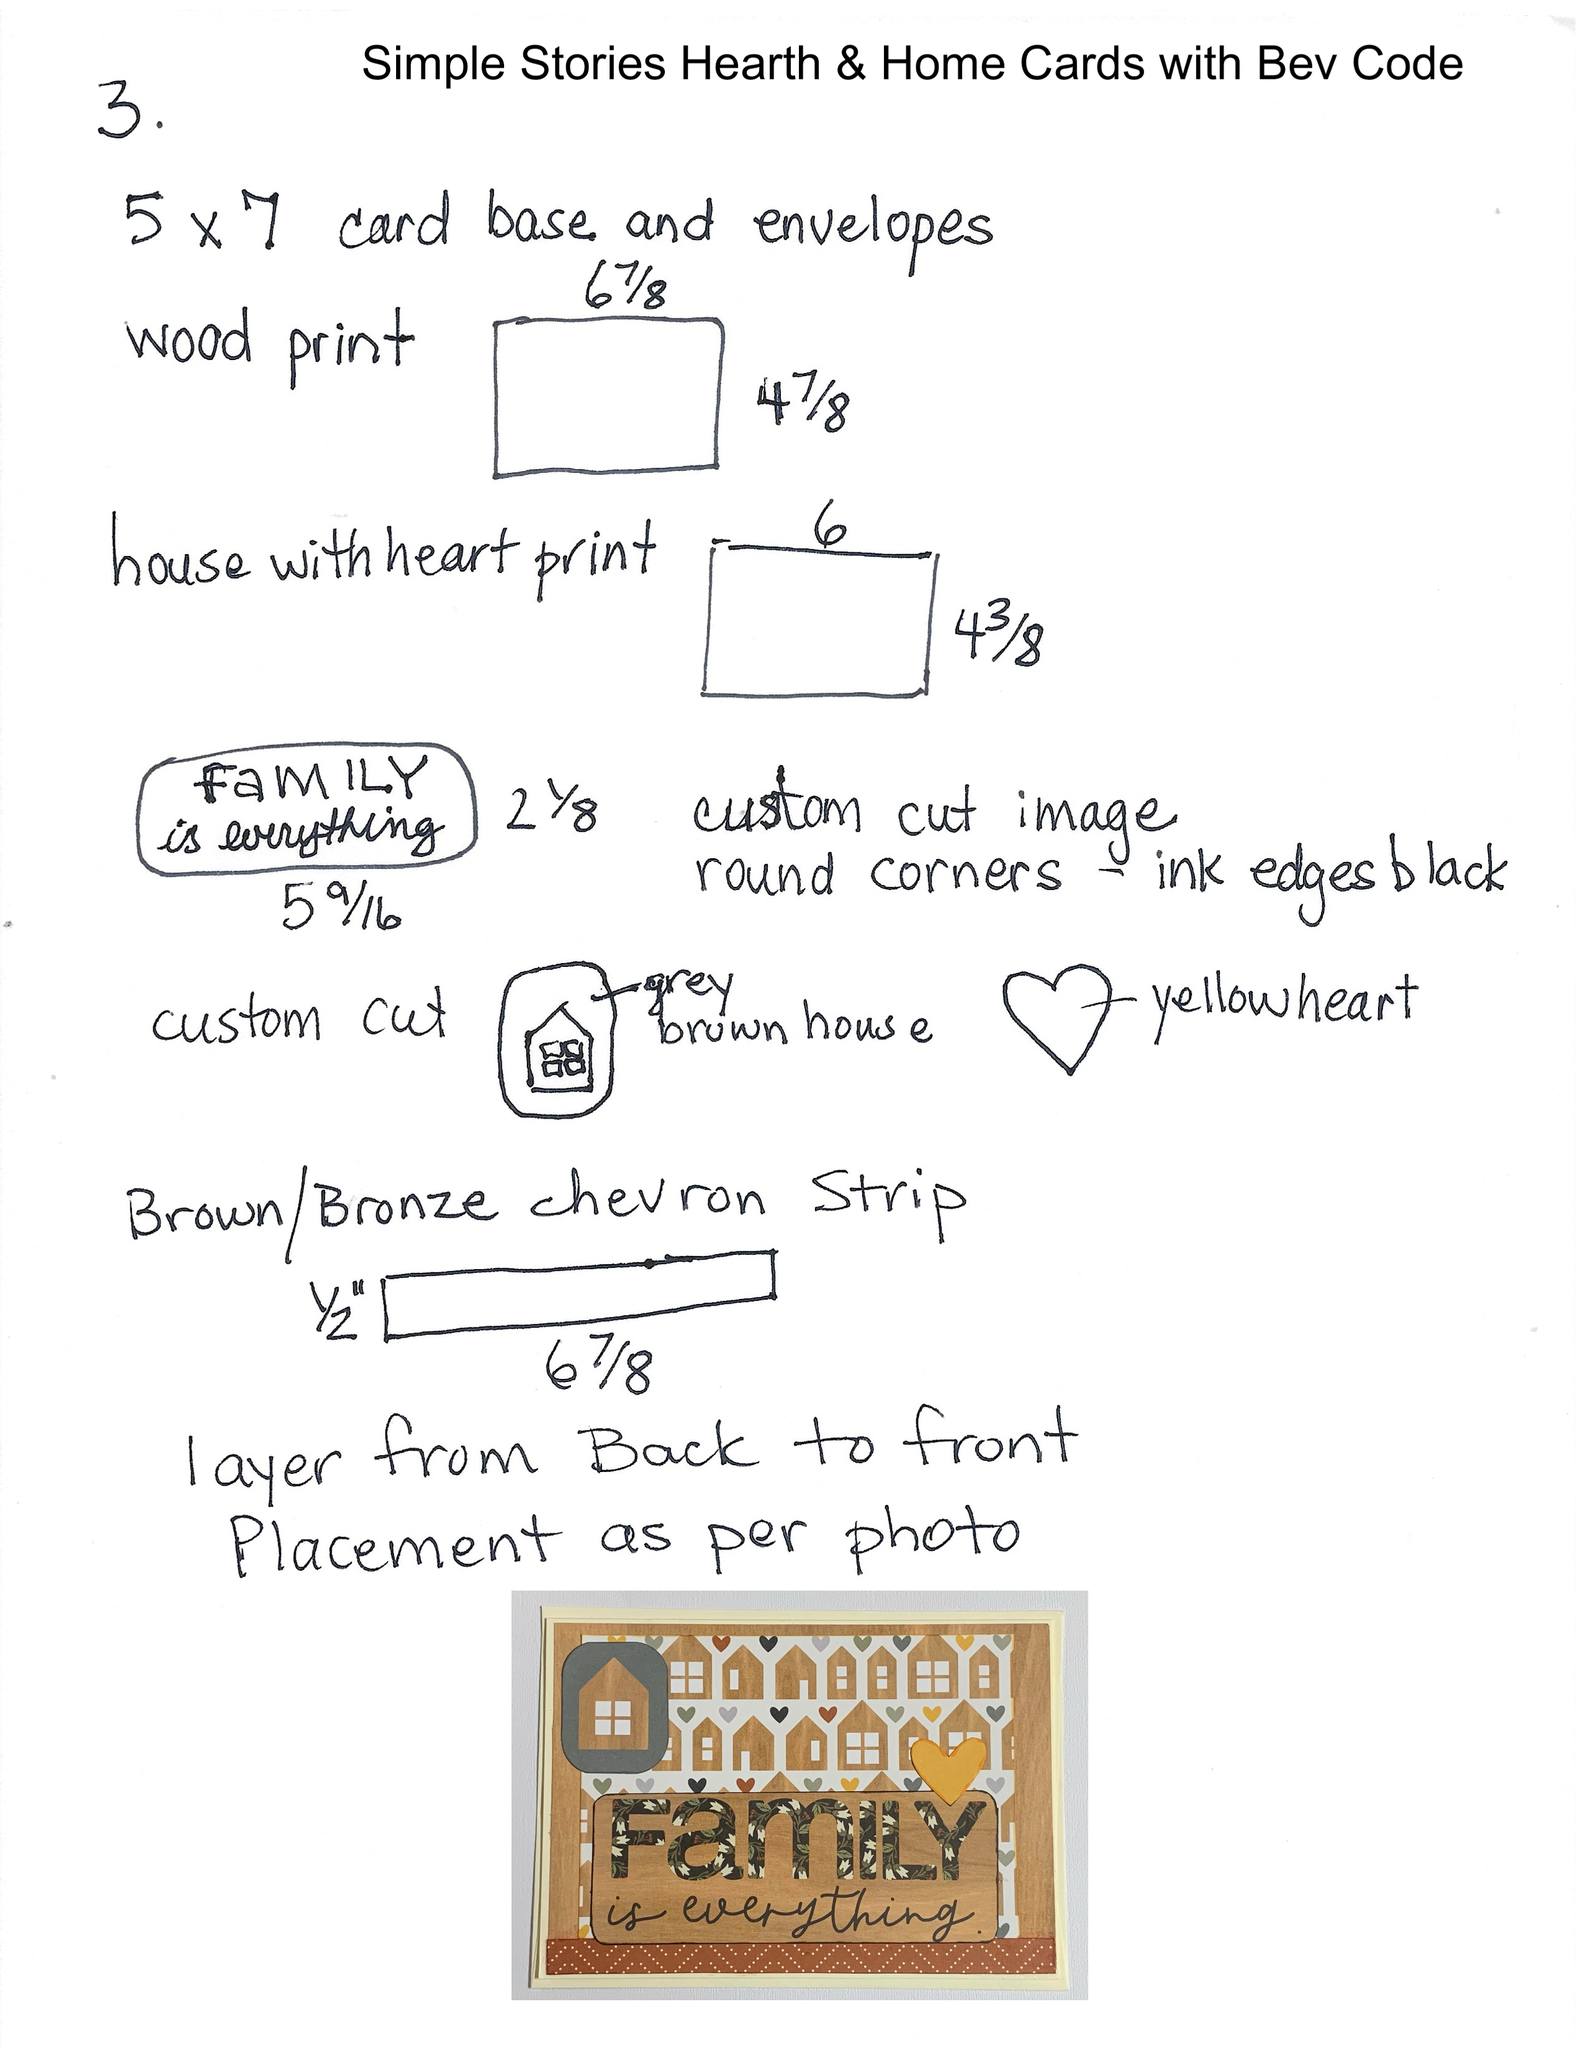 Simple Stories Hearth & Home Cards with Bev Code
3.
5 x 7 card base and envelopes
6 7/8
wood print
4 7/8
6
house with heart print
4 3/8
FamILY
is everything
2 1/8
5 9/16
custom cut image
round corners - ink edges black
custom cut
grey
brown house
yellow heart
Brown/Bronze chevron Strip
1/2"
6 7/8
layer from Back to front
Placement as per photo
FamILY
is everything.